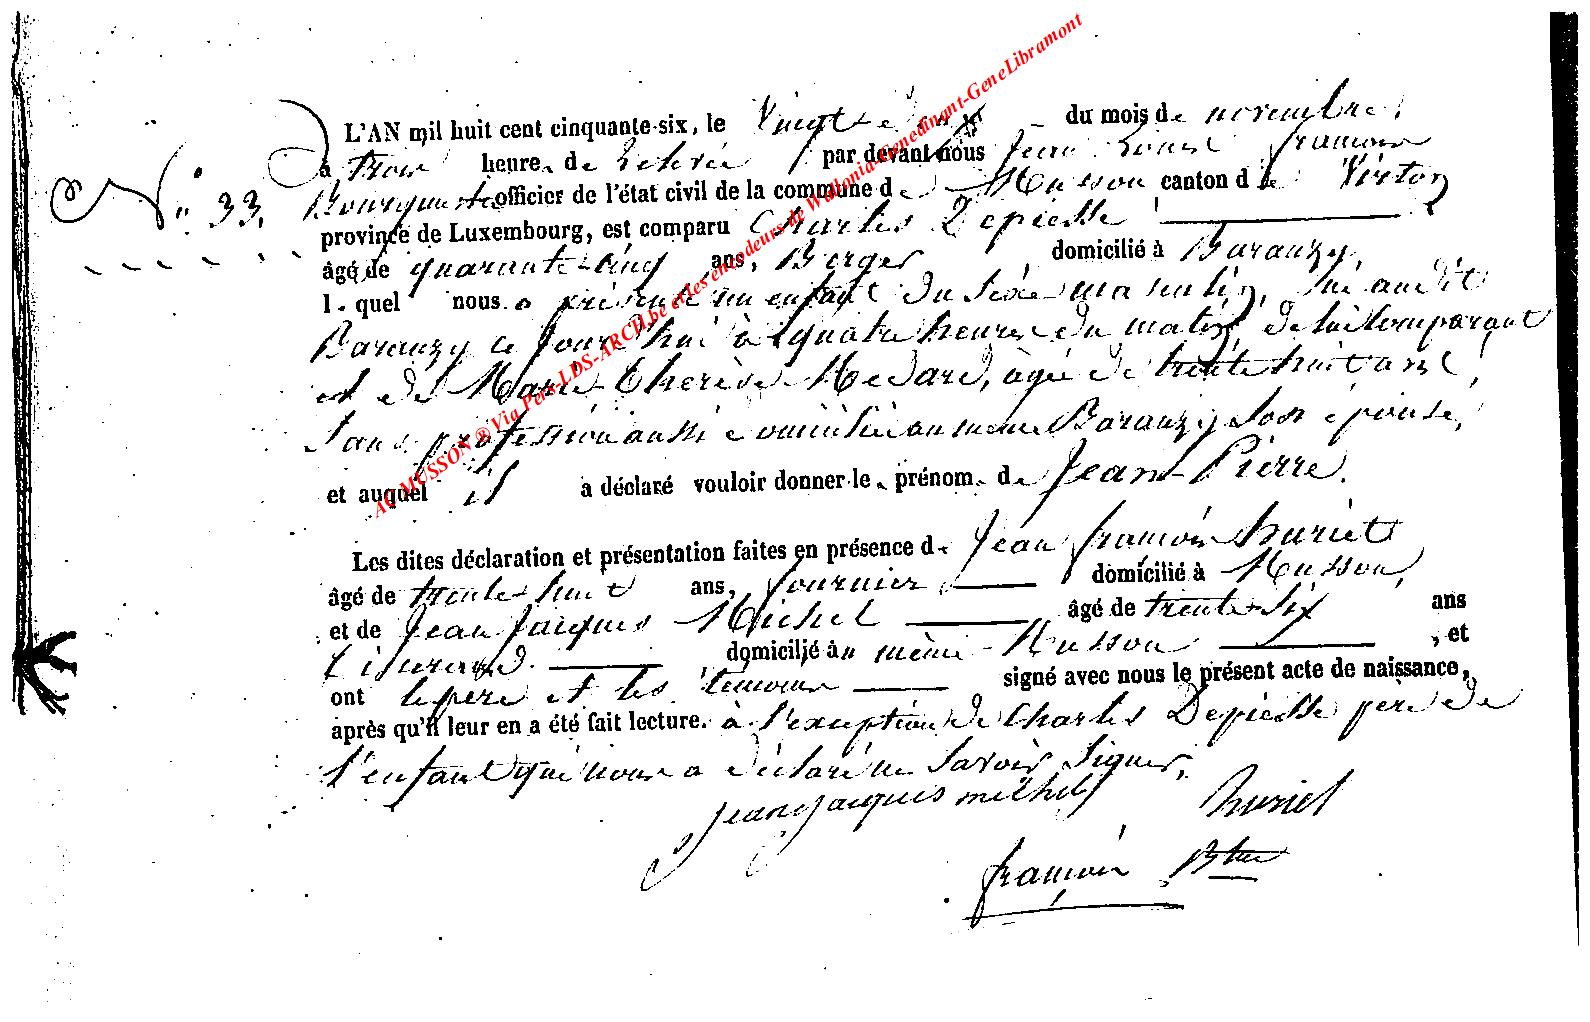 N° 33.
L'AN mil huit cent cinquante-six, le Vingt-e du mois de novembre,
à trois heure de relevée par devant nous Jean Louis françois
Bourguesson officier de l'état civil de la commune de Musson canton de Virton
province de Luxembourg, est comparu Charles Depiesse
âgé de quarante-cinq ans, Berger domicilié à Baranzy,
lequel nous a présenté un enfant du sexe masculin, né audit
Baranzy ce jourd'hui à quatre heures du matin, de lui Comparant
et de Marie-Therèse Medard, agée de trente huit ans,
sans profession aussi domiciliée au même Baranzy son épouse,
et auquel il a déclaré vouloir donner le prénom de Jean-Pierre.
Les dites déclaration et présentation faites en présence de Jean françois huriet
âgé de trente-huit ans, fournier domicilié à Musson,
et de Jean Jacques Michel âgé de trente-six ans
tisserand. domicilié au même Musson , et
ont le père et les temoins signé avec nous le présent acte de naissance,
après qu'il leur en a été fait lecture. à l'exception de Charles Depiesse père de
l'enfant qui nous a déclaré ne savoir signer.
jean jacques michel huriet
françois
AC MUSSON ® Via Pers-LDS-ARCH.be et les encodeurs de Wallonia-Genedinant-GeneLibramont